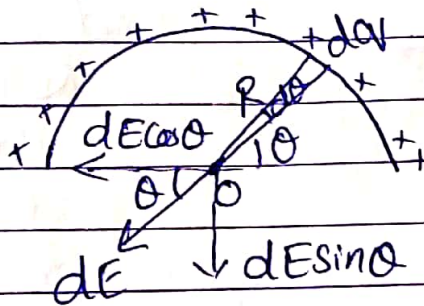 + + + + + dq
+ R dθ +
+ dEcosθ θ +
+ θ O +
dE dEsinθ